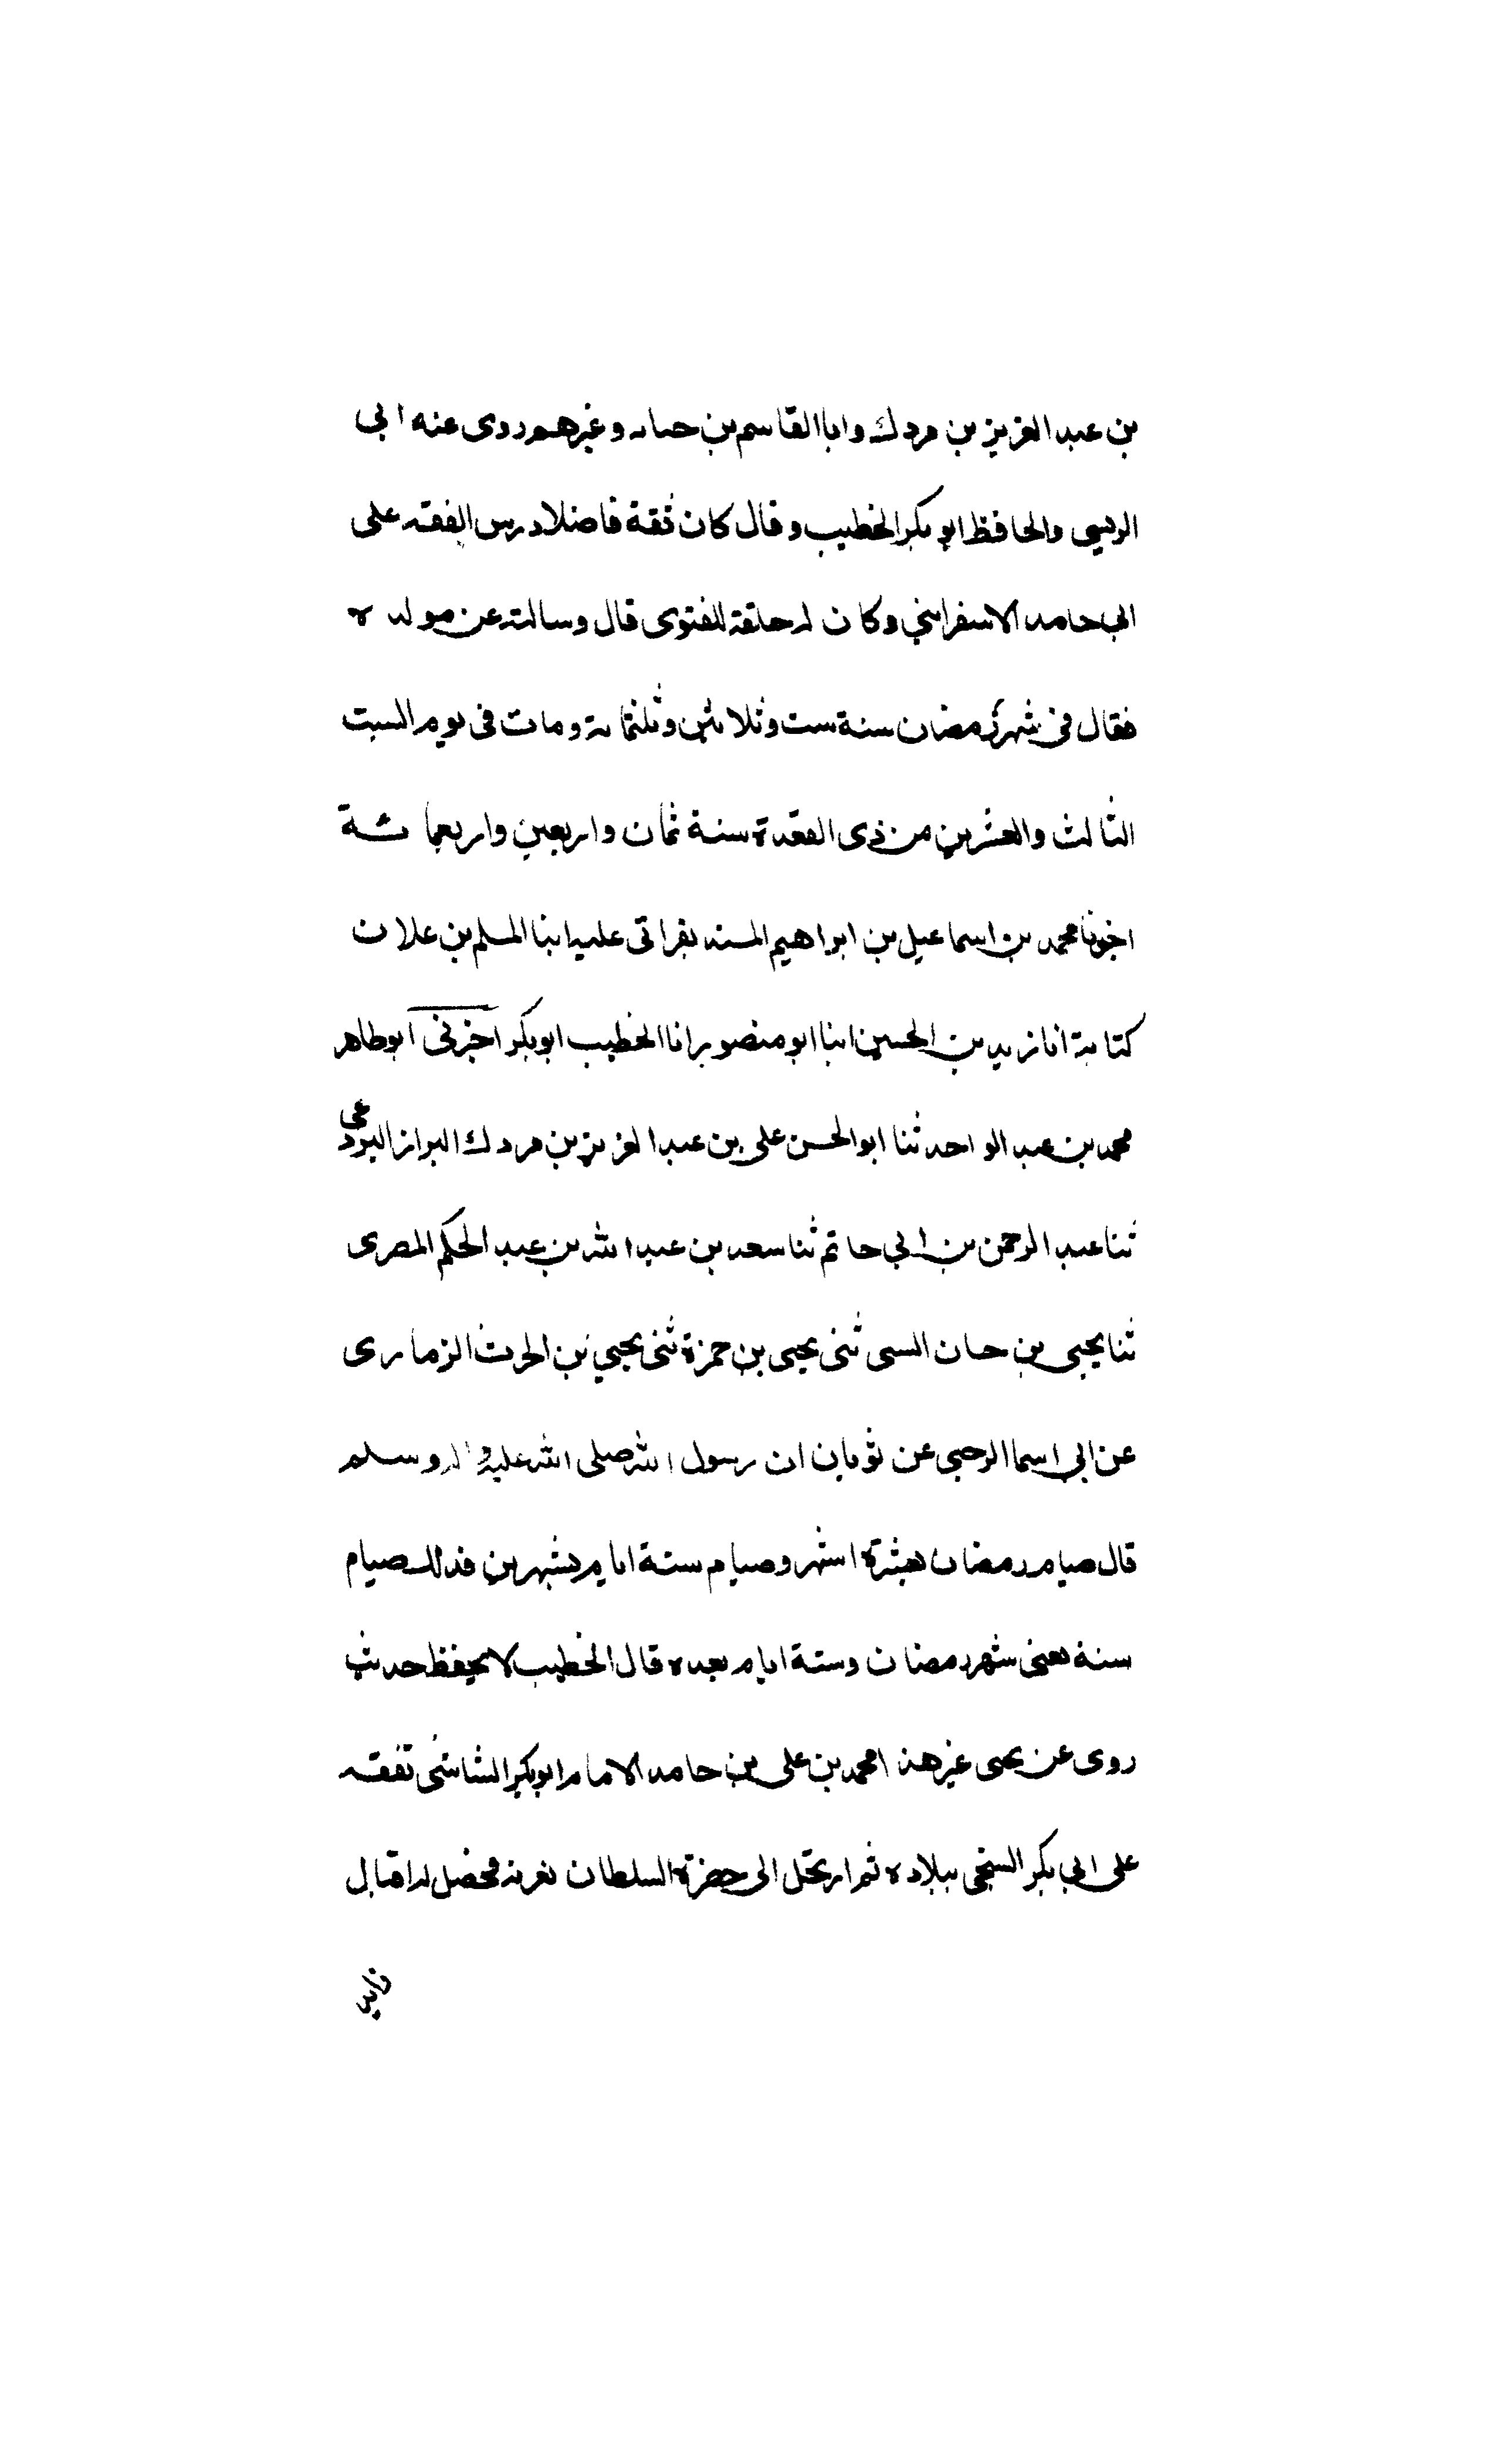 بن عبد العزيز بن مردك وابا القاسم بن حبابه وغيرهم روى عنه ابي
الرسي والحافظ ابو بكر الخطيب وقال كان ثقة فاضلا درس الفقه على
ابي حامد الاسفرايني وكان له حلقة للفتوى قال وسالته عن مولده
فقال في شهر رمضان سنة ست وثلاثين وثلثماية ومات في يوم السبت
الثالث والعشرين من ذي القعدة سنة ثمان واربعين واربعمائة
اخبرنا محمد بن اسماعيل بن ابراهيم المسند بقراتي عليه انبا المسلم بن علان
كتابة انا زيد بن الحسين انبا ابو منصور انا الخطيب ابو بكر اخبرني ابو طاهر
محمد بن عبد الواحد ثنا ابو الحسن علي بن عبد العزيز بن مردك البزاز البردعي
ثنا عبد الرحمن بن ابي حاتم ثنا سعد بن عبد الله بن عبد الحكم المصرى
ثنا يحيى بن حسان ثنى يحيى بن حمزة ثنى يحيى بن الحرث الزمارى
عن ابي اسما الرحبي عن ثوبان ان رسول الله صلى الله عليه واله وسلم
قال صيام رمضان بعشرة اشهر وصيام ستة ايام بشهرين فذلك صيام
سنة يعنى شهر رمضان وستة ايام بعده قال الخطيب لا يحفظ حديث
روى عن يحيى غير هذا محمد بن علي بن حامد الامام ابو بكر الشاشي تفقه
على ابي بكر السنجي ببلاده ثم ارتحل الى حضرة السلطان بغزنه فحصل له اقبال